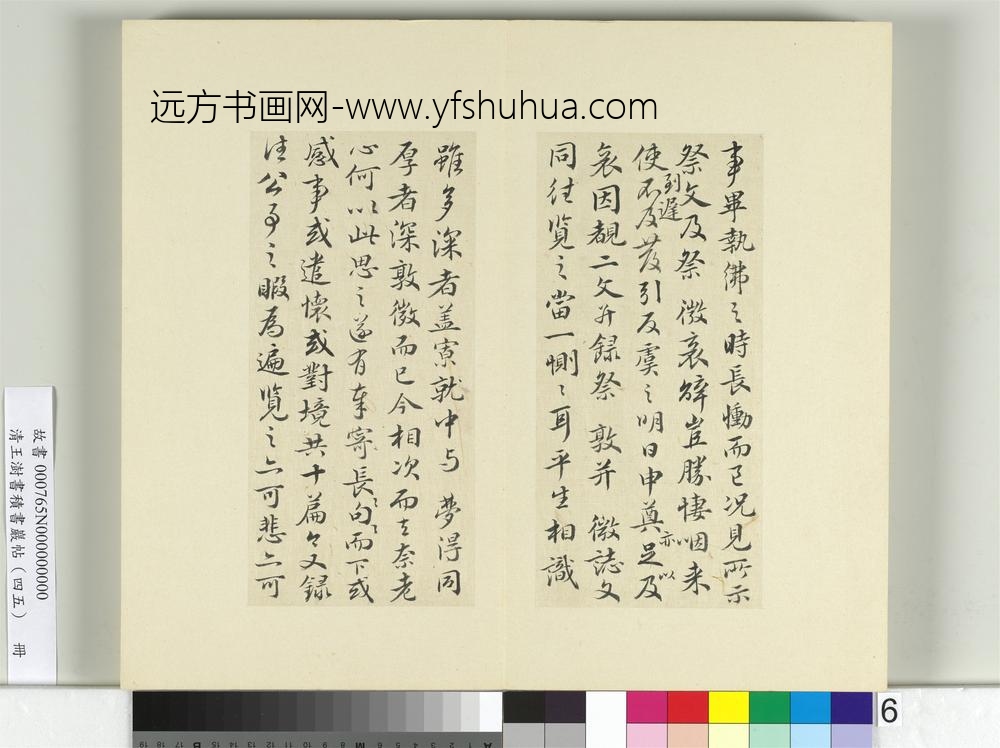 远方书画网-www.yfshuhua.com
事畢執佛之時長慟而已况見所示
祭文及祭微哀辞豈勝悽咽来
使到遲不及發引反虞之明日申奠足及亦以
哀因覩二文并録祭敦并微誌文
同往覧之當一惻々耳平生相識
雖多深者盖寡就中与夢得同
厚者深敦微而已今相次而去奈老
心何以此思之遂有奉寄長句長句而下或
感事或遣懷或對境共十篇今又録
往公事之暇為遍覧之亦可悲亦可
故書 000765N000000000
清王澍書積書巖帖（四五） 冊
6